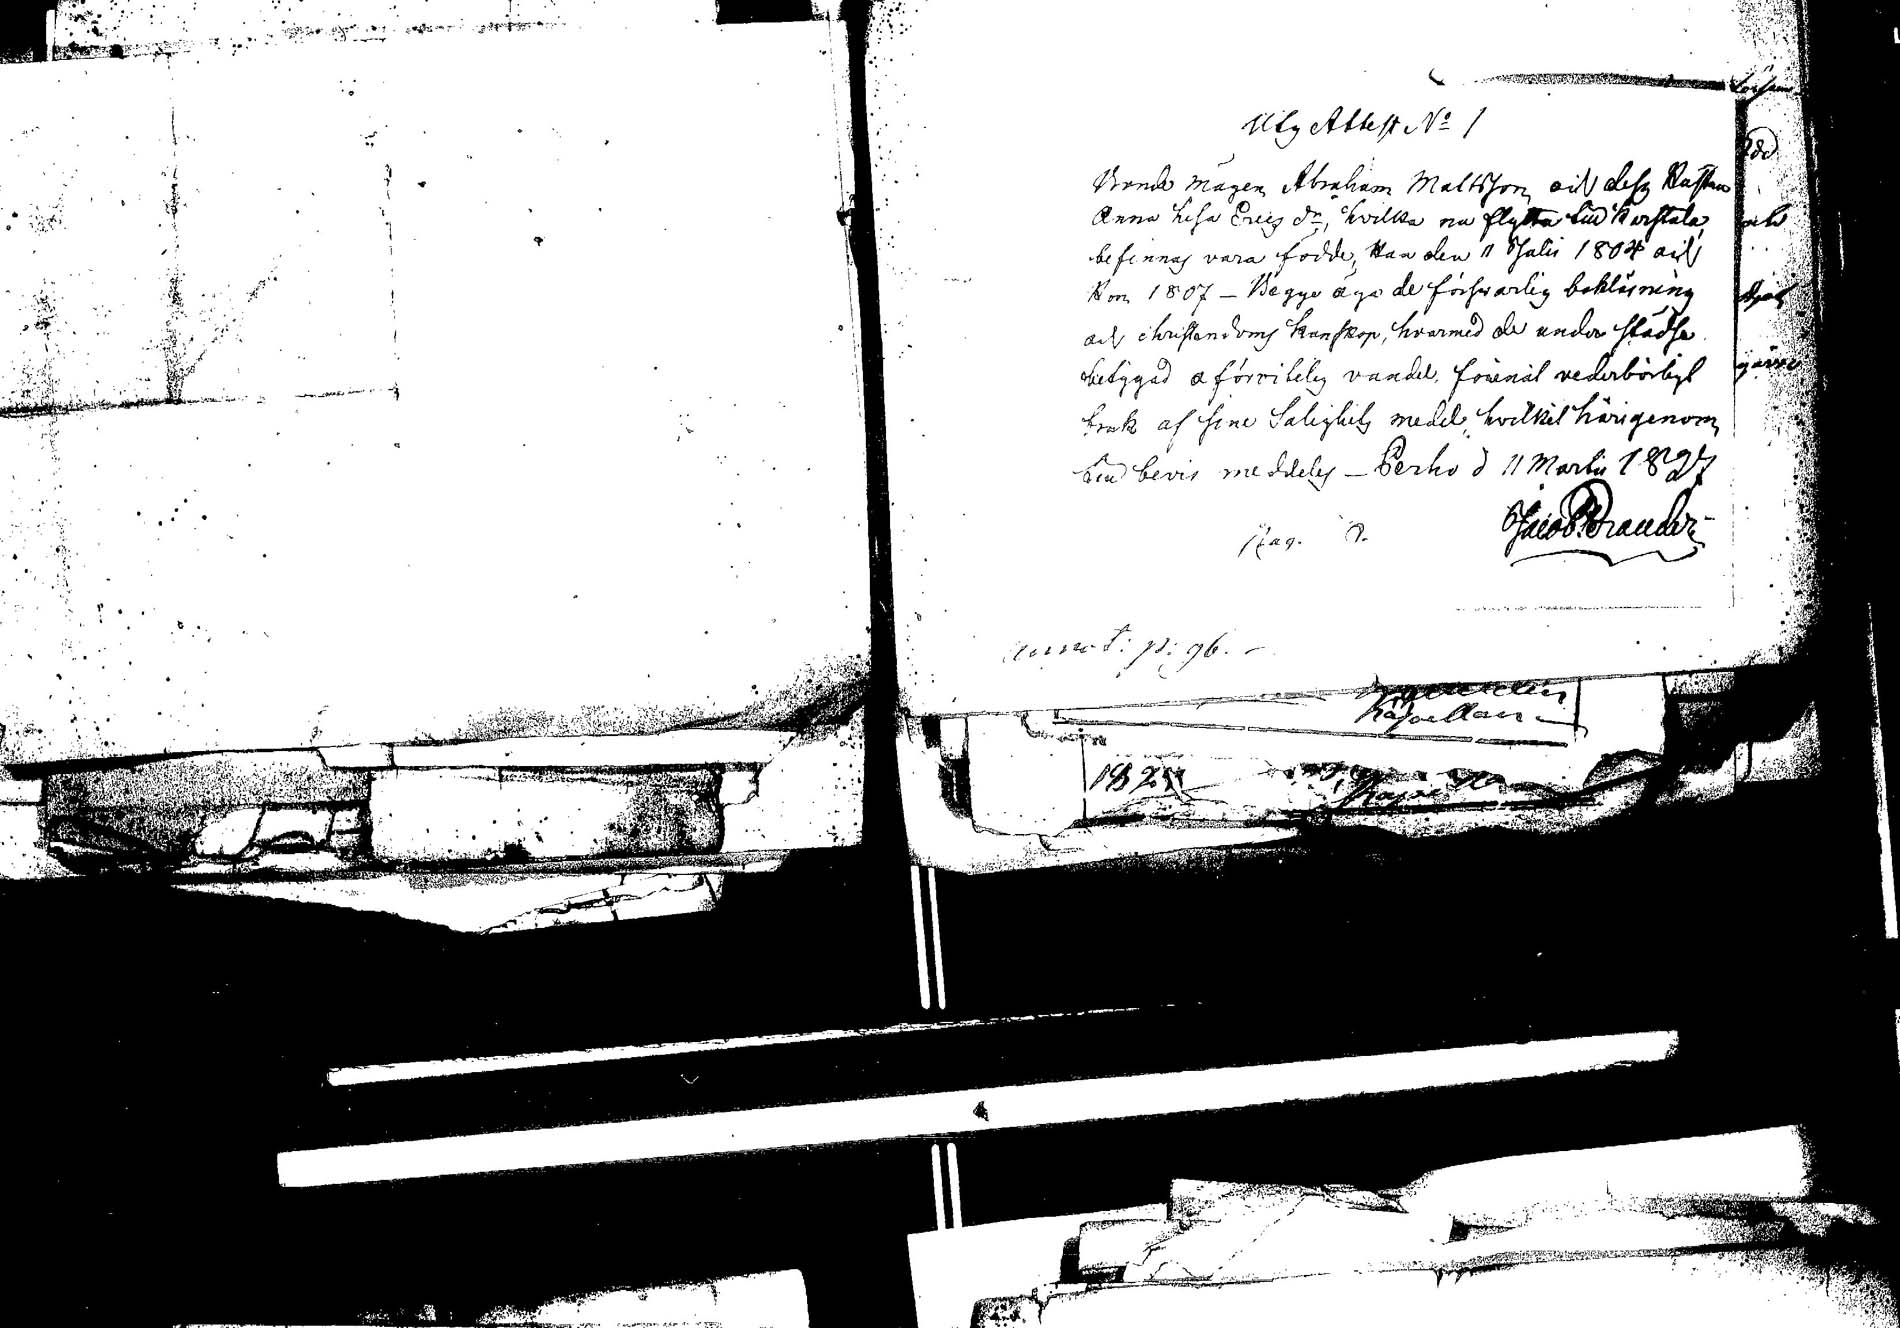 Utg Attest No 1
Bonde mågen Abraham Mattsson och dess Hustru
Anna Lisa Erics dr, hvilka nu flytta till Karstula,
befinnas vara födde, Han den 11 Julii 1804 och
Hon 1807 – Begge äga de försvarlig bokläsning
och christendoms kunskap, hvarmed de under städse
betygad oförvitelig vandel, förenat vederbörligt
bruk af sine Salighets medel, hvilket härigenom
till bevis meddeles – Perho d 11 Martii 1827
Jacob Brander
Pag.
annot: p: 96. –
Kapellan
182